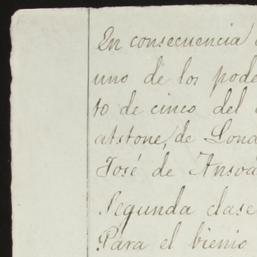 En consecuencia
uno de los pode
to de cinco del
atstone, de Lond
José de Ansoa
Segunda clase
Para el bienio